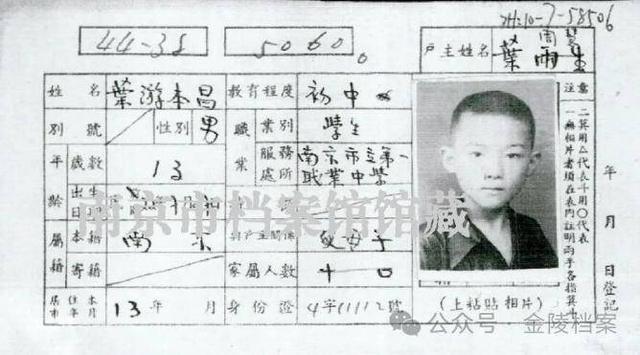 44-38
5060
戶主姓名
葉雨生
姓名 葉游本昌 教育程度 初中
別號 性別 男 職業 業別 學生
年齡 歲數 13 服務處所 南京市立第一職業中學
出生
屬籍 本籍 南京 與戶主關係
寄籍 家屬人數 十口
居住本市年月 13年 月 身份證 4字11112號
(上粘貼相片)
注意
一無相片者須在表內註明兩手各指箕斗
二箕用△代表斗用〇代表
年 月 日登記
南京市档案馆馆藏
公众号·金陵档案